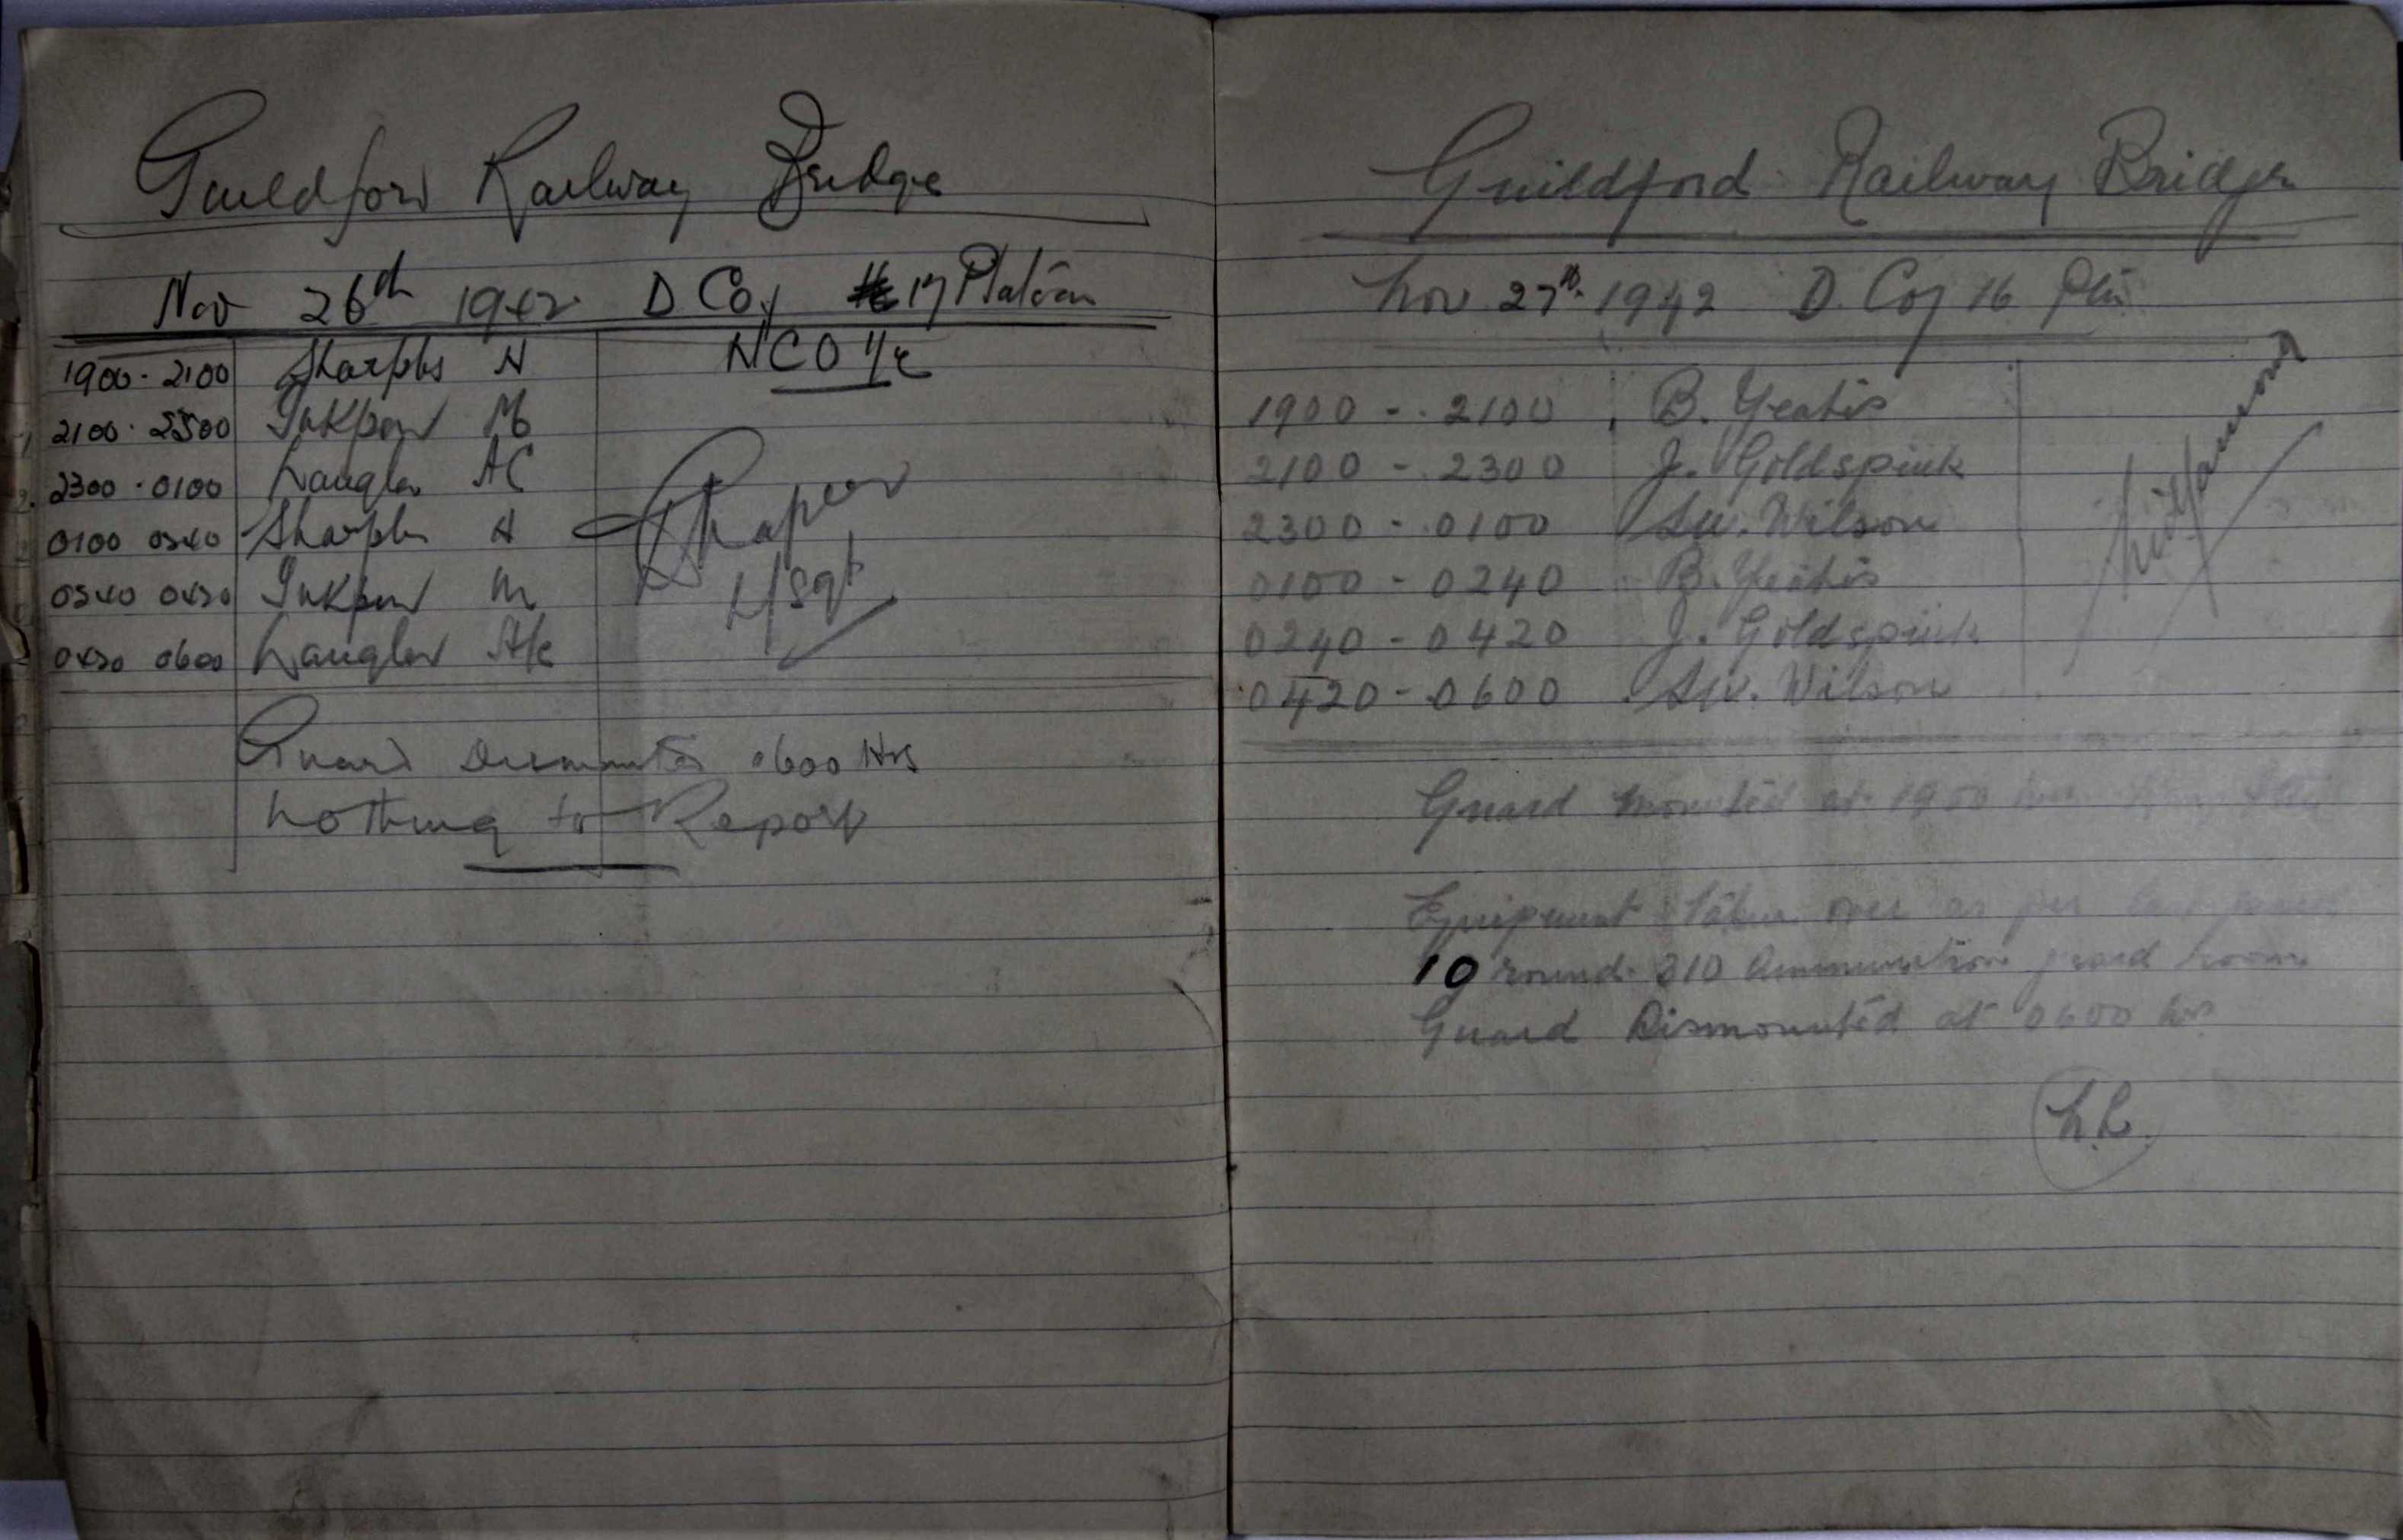 Guildford Railway Bridge
Nov 26th 1942 D Coy 17 Platoon
NCO I/c
1900 - 2100 Sharples H
2100 - 2300 Inkpen M
2300 - 0100 Langler AC
0100 0240 Sharples H
0240 0420 Inkpen M
0420 0600 Langler AC
L/Sgt
Guard Dismounted 0600 Hrs
Nothing to Report
Guildford Railway Bridge
Nov 27th 1942 D. Coy 16 Pltn
1900 - 2100 B. Yeatis
2100 - 2300 J. Goldspink
2300 - 0100 Wilson
0100 - 0240 B. Yeatis
0240 - 0420 J. Goldspink
0420 - 0600 Wilson
Guard mounted at 1900
Equipment taken over as per
10 rounds 310 Ammunition guard room
Guard Dismounted at 0600 hrs